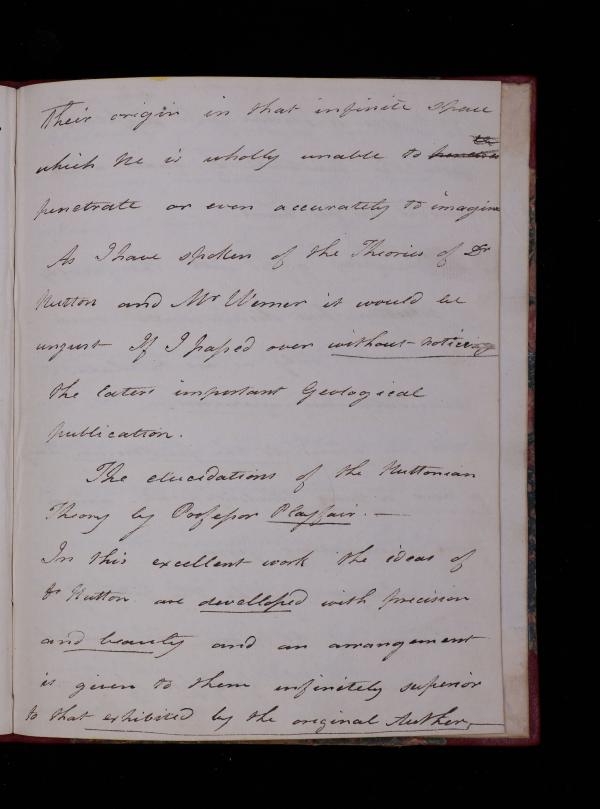 Their origin in that infinite space
which he is wholly unable to
penetrate or even accurately to imagine
As I have spoken of the Theories of Dr
Hutton and Mr Werner it would be
unjust If I passed over without noticing
the latest important Geological
publication.
The elucidations of the Huttonian
Theory by Professor Playfair. —
In this excellent work the ideas of
Dr Hutton are developped with precision
and beauty and an arrangement
is given to them infinitely superior
to that exhibited by the original Author,